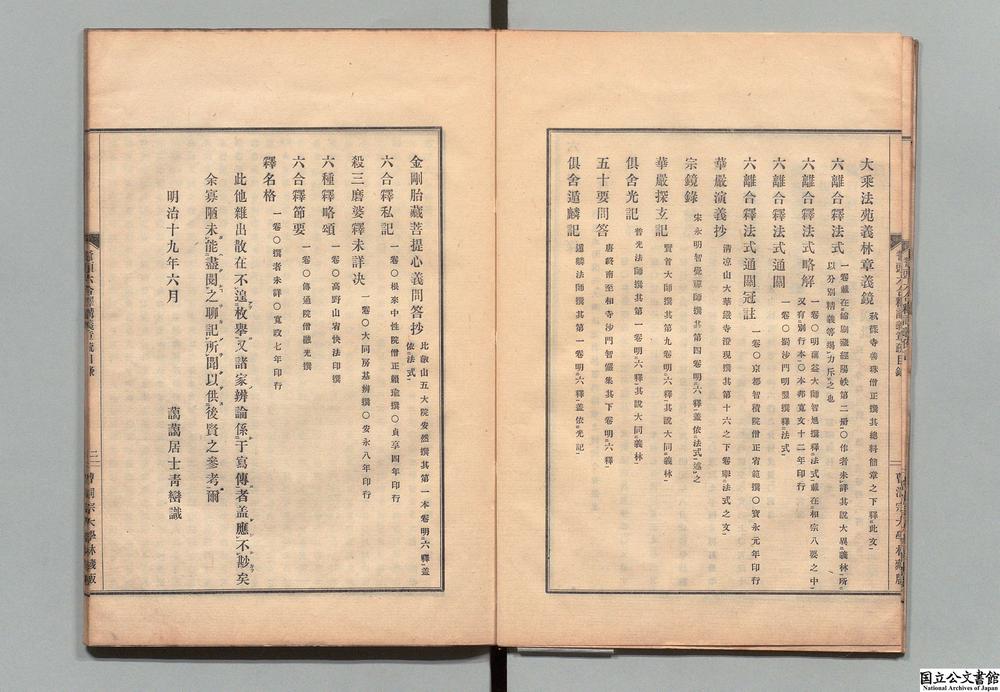 大乘法苑義林章義鏡 秋篠寺善珠僧正撰其總料簡章之下釋此文
六離合釋法式 一卷載在縮刷藏經陽帙第二册○作者未詳其說大異義林所
以分別精義等場力斥之也
六離合釋法式略解 一卷○明蕅益大師智旭撰釋法式載在相宗八要之中
又有別行本○本邦寬文十二年印行
六離合釋法式通關 一卷○蜀沙門明昱撰釋法式
六離合釋法式通關冠註 一卷○京都智積院僧正宥範撰○寶永元年印行
華嚴演義抄 淸凉山大華嚴寺澄現撰其第十六之下卷擧法式之文
宗鏡錄 宋永明智覺禪師撰其第四卷明六釋蓋依法式述之
華嚴探玄記 賢首大師撰其第九卷明六釋其說大同義林
俱舍光記 普光法師撰其第一卷明六釋其說大同義林
五十要問答 唐終南至相寺沙門智儼集其下卷明六釋
俱舍遁麟記 遁麟法師撰其第一卷明六釋蓋依光記
金剛胎藏菩提心義問答抄 比叡山五大院安然撰其第一本卷明六釋蓋
依法式
六合釋私記 一卷○根來中性院僧正賴瑜撰○貞享四年印行
殺三磨婆釋未詳決 一卷○大同房基辨撰○安永八年印行
六種釋略頌 一卷○高野山宥快法印撰
六合釋節要 一卷○傳通院僧融光撰
釋名格 一卷○撰者未詳○寬政七年印行
此他雜出散在不遑枚擧又諸家辨論係于寫傳者盖應不尠矣
余寡陋未能盡閱之聊記所聞以供後賢之參考爾
明治十九年六月 藹藹居士靑巒識
二
曹洞宗大學林藏版
国立公文書館
National Archives of Japan